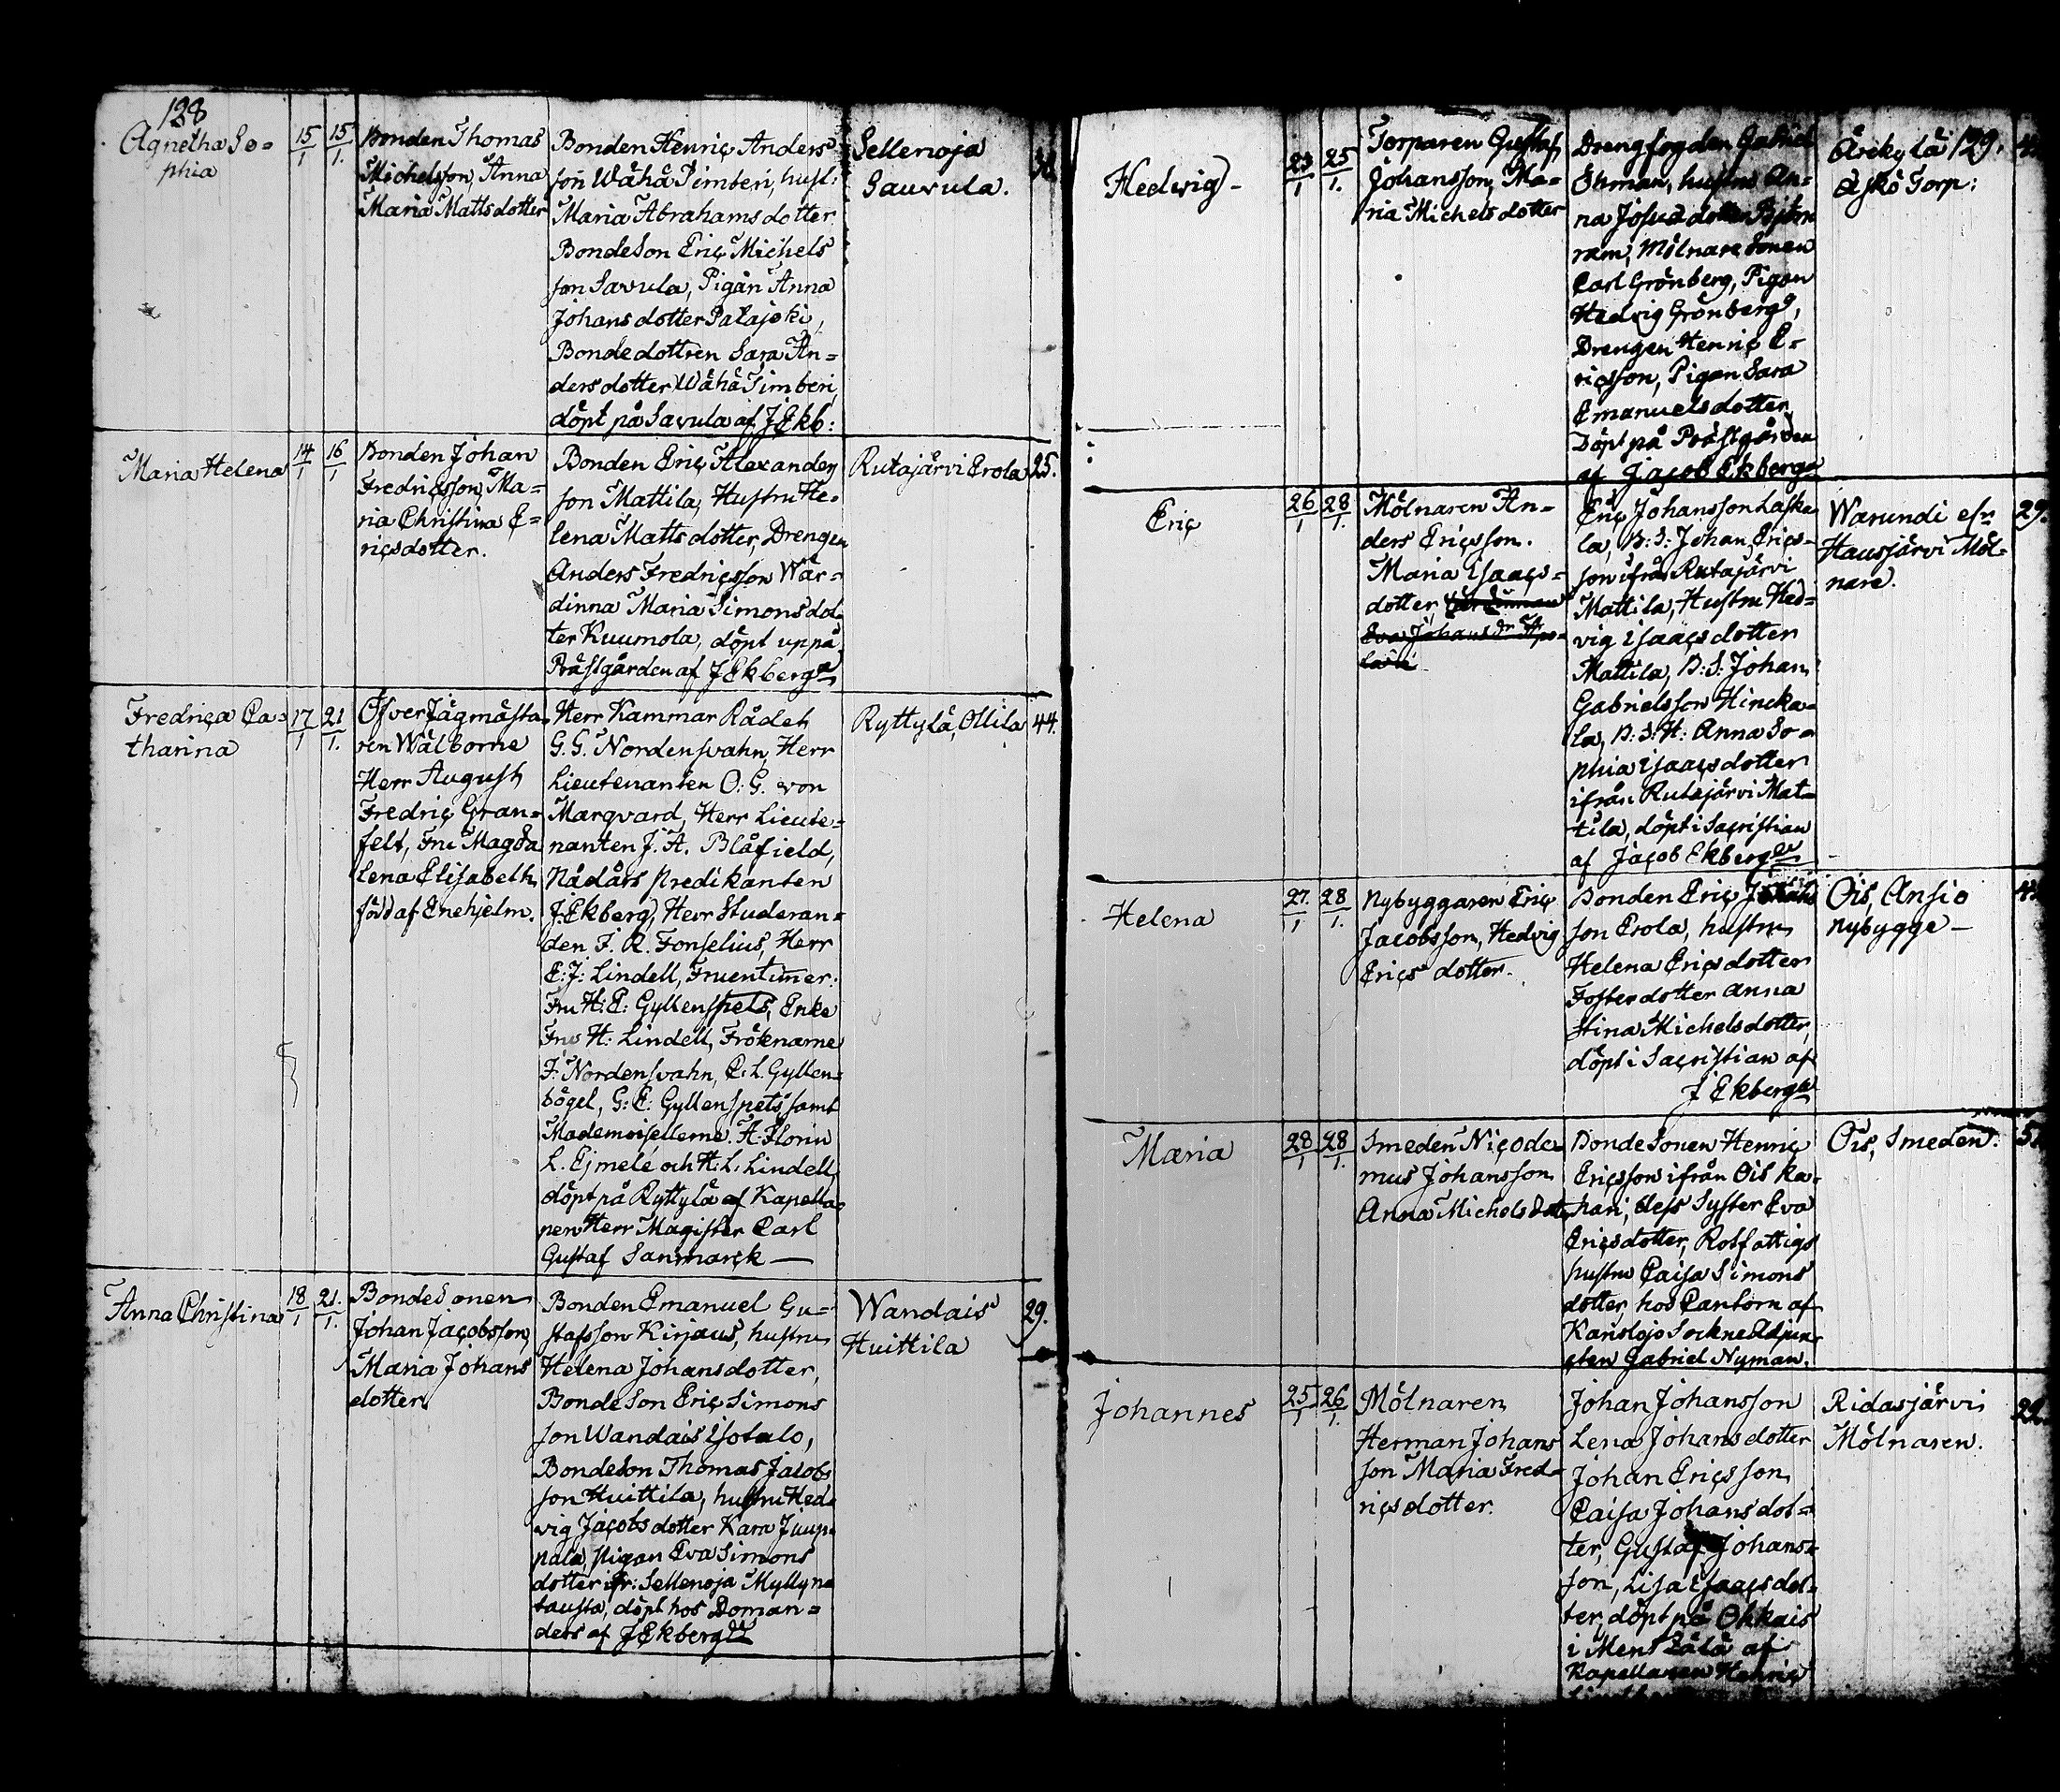 128
Agnetha So=
phia
15/1
15/1.
Bonden Thomas
Michelsson, Anna
Maria Mattsdotter
Bonden Henriç Anders
son Wähä Simberi, hust:
Maria Abrahamsdotter
BondeSon Eriç Michels
son Savula, Pigan Anna
Johansdotter Patajoki,
Bondedottren Sara An=
dersdotter Wähä Simberi,
döpt på Savula af J Ekb:
Sellenoja
Sauvula.
Maria Helena
14/1
16/1
Bonden Johan
Fredriçsson, Ma=
ria Christina E=
riçsdotter.
Bonden Eriç Alexanders
son Mattila, Hustru He=
lena Mattsdotter, Drengen
Anders Fredriçsson Wär=
dinna Maria Simonsdot
ter Kuumola, döpt uppå
Prästgården af J Ekberg
Rutajärvi Erola
25.
Fredriça Ca=
tharina
17/1
21/1.
ÖfverJägmästa
ren Wälborne
Herr August
Fredriç Gran=
felt, Fru Magda
Lena Elisabeth
född af Enehjelm.
Herr Kammar Rådet
G. G. Nordensvahn, Herr
Lieutenanten O: G. von
Marqvard, Herr Lieute=
nanten J. A. Blåfield,
Nådårs predikanten
J. Ekberg, Herr Studeran=
den F. R. Fonselius, Herr
E: J: Lindell, Fruentimer:
Fru H: E: Gyllenspets, Enke
Fru H: Lindell, Frökname
F: Nordensvahn, C: L. Gyllen=
bögel, G: E: Gyllenspets samt
Mademoisellerna A: Florin
L. Ejmelé och H: L: Lindell,
döpt på Ryttylä af Kapella=
nen Herr Magister Carl
Gustaf Sanmarck —
Ryttylä, Ollila
44.
Anna Christina
18/1
21/1.
BondeSonen
Johan Jaçobsson,
Maria Johans
dotter
Bonden Emanuel Gu=
stafsson Kirjaus, hustru
Helena Johansdotter,
BondeSon Eriç Simons
son Wandais Isotalo,
BondeSon Thomas Jacobs
son Huittila, hustru Hed=
vig Jaçobsdotter Kara Juup=
pala, Pigan Eva Simons
dotter ifr: Sellenoja Myllyn
tausta, döpt hos Doman=
ders af J Ekberg
Wandais
Huittila
29.
129.
Hedvig -
23/1
25/1.
Torparen Gustaf
Johansson, Ma=
ria Michelsdotter
Drengfogden Gabriel
Öhman, hustru An=
na Josuadotter Björn
ram, MölnareSonen
Carl Grönberg, Pigan
Hedvig Grönberg,
Drengen Henriç E=
riçsson, Pigan Sara
Emanuelsdotter,
Döpt på Prästgården
af Jacob Ekberg
Äskö Torp:
Eriç
26/1
28/1.
Mölnaren An=
ders Eriçsson.
Maria Isaaçs=
dotter
Eriç Johansson Laska
la, B: S: Johan Eriçs=
son ifrån Rutajärvi
Mattila, Hustru Hed=
vig Isaaçsdotter
Mattila, B: S: Johan
Gabrielsson Hincka=
la, B: S: H: Anna So=
phia Isaaçsdotter
ifrån Rutajärvi Mat=
tila, döpt i Sacristian
af Jaçob Ekberg
Warundi
Hausjärvi Möl=
nare.
29.
Helena
27/1
28/1.
Nybyggaren Eriç
Jacobsson, Hedvig
Eriçsdotter.
Bonden Eriç Johans
son Erola, hustru
Helena Eriçsdotter
Fosterdotter Anna
Stina Michelsdotter,
döpt i Sacristian af
J Ekberg
Ois, Ansio
nybygge —
Maria
28/1
28/1.
Smeden Niçode
mus Johansson
Anna Michelsdotter
BondeSonen Henriç
Eriçsson ifrån Ois Ka=
hari, dess Syster Eva
Eriçsdotter, Rotfattigs
hustru Caisa Simons
dotter hos Cantorn af
Karislojo Sockne Adjun=
cten Gabriel Nyman.
Ois, Smeden.
Johannes
25/1
26/1.
Mölnaren
Herman Johans
son Maria Fred=
riçsdotter.
Johan Johansson
Lena Johansdotter
Johan Eriçsson
Caisa Johansdot=
ter, Gustaf Johans=
son, Lisa Isaaçsdot=
ter, döpt på Ohkais
i Mentzälä af
Kapellanen Henriç
Ridasjärvi
Mölnaren.
22.